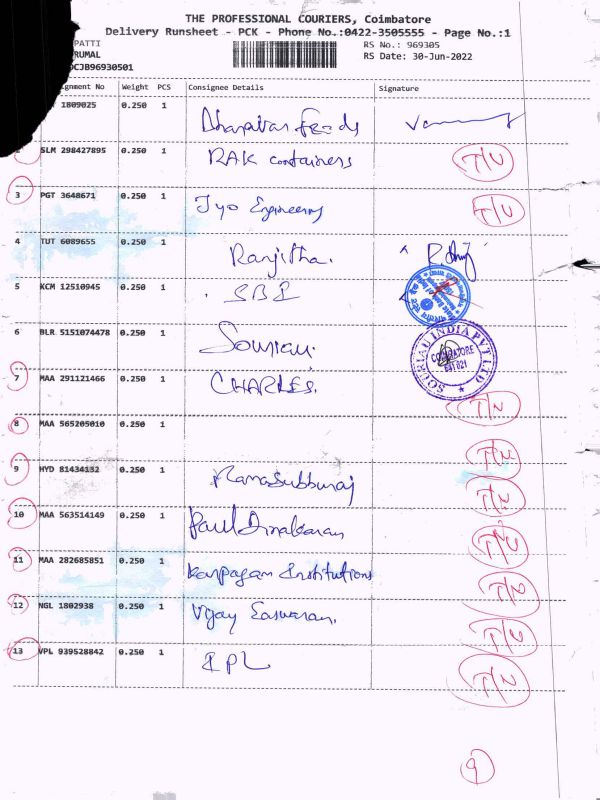 THE PROFESSIONAL COURIERS, Coimbatore
Delivery Runsheet - PCK - Phone No.:0422-3505555 - Page No.:1
PATTI RS No.: 969305
RUMAL RS Date: 30-Jun-2022
CJB96930501
signment No Weight PCS Consignee Details Signature
1809025 0.250 1 Feeds
2 SLM 298427895 0.250 1 RAK containers T/U
3 PGT 3648671 0.250 1 Jyo Engineering T/U
4 TUT 6089655 0.250 1 Ranjitha.
5 KCM 12510945 0.250 1 SBI
6 BLR 5151074478 0.250 1 Souriau.
SOURIAU INDIA PVT LTD
COIMBATORE
641 021
7 MAA 291121466 0.250 1 CHARLES. T/N
8 MAA 565205010 0.250 1 T/N
9 HYD 81434132 0.250 1 Ramasubburaj T/N
10 MAA 563514149 0.250 1 Paul Dinakaran T/U
11 MAA 282685851 0.250 1 Karpagam Institutions T/U
12 NGL 1802938 0.250 1 Vijay Easwaran. T/U
13 VPL 939528842 0.250 1 IPL T/N
9